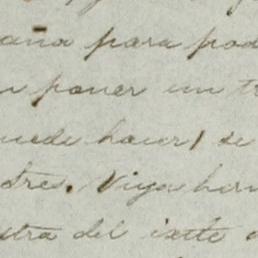 aña para pod
poner un tr
uede hacer) se
dres. Viya her
stra del ixtle